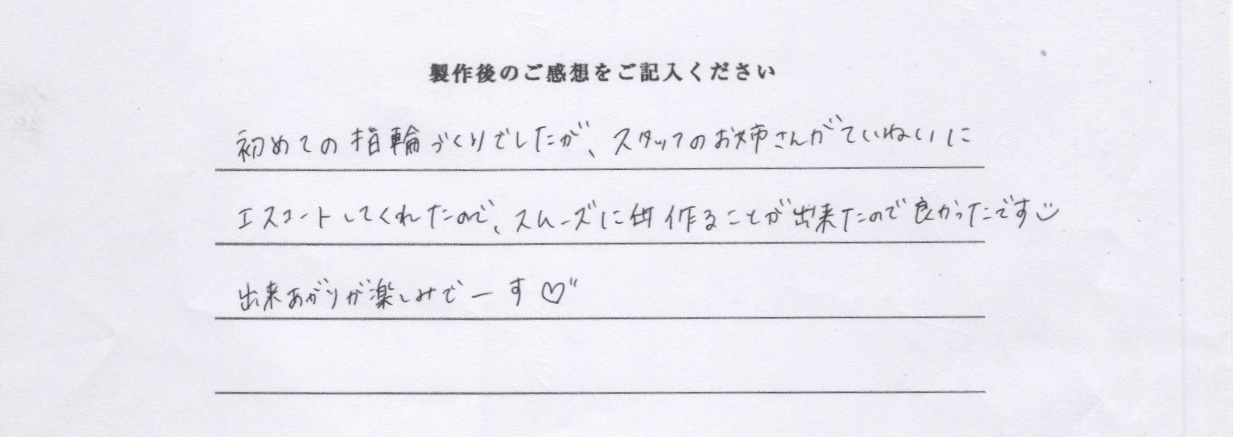 製作後のご感想をご記入ください
初めての指輪づくりでしたが、スタッフのお姉さんがていねいに
エスコートしてくれたので、スムーズに作ることが出来たので良かったです
出来あがりが楽しみでーす♡